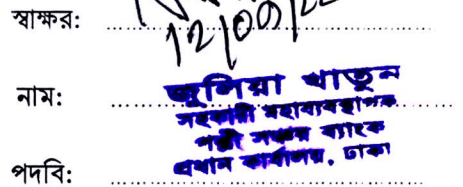 স্বাক্ষর:
12/09/22
নাম:
জুলিয়া খাতুন
সহকারী মহাব্যবস্থাপক
পল্লী সঞ্চয় ব্যাংক
প্রধান কার্যালয়, ঢাকা
পদবি: